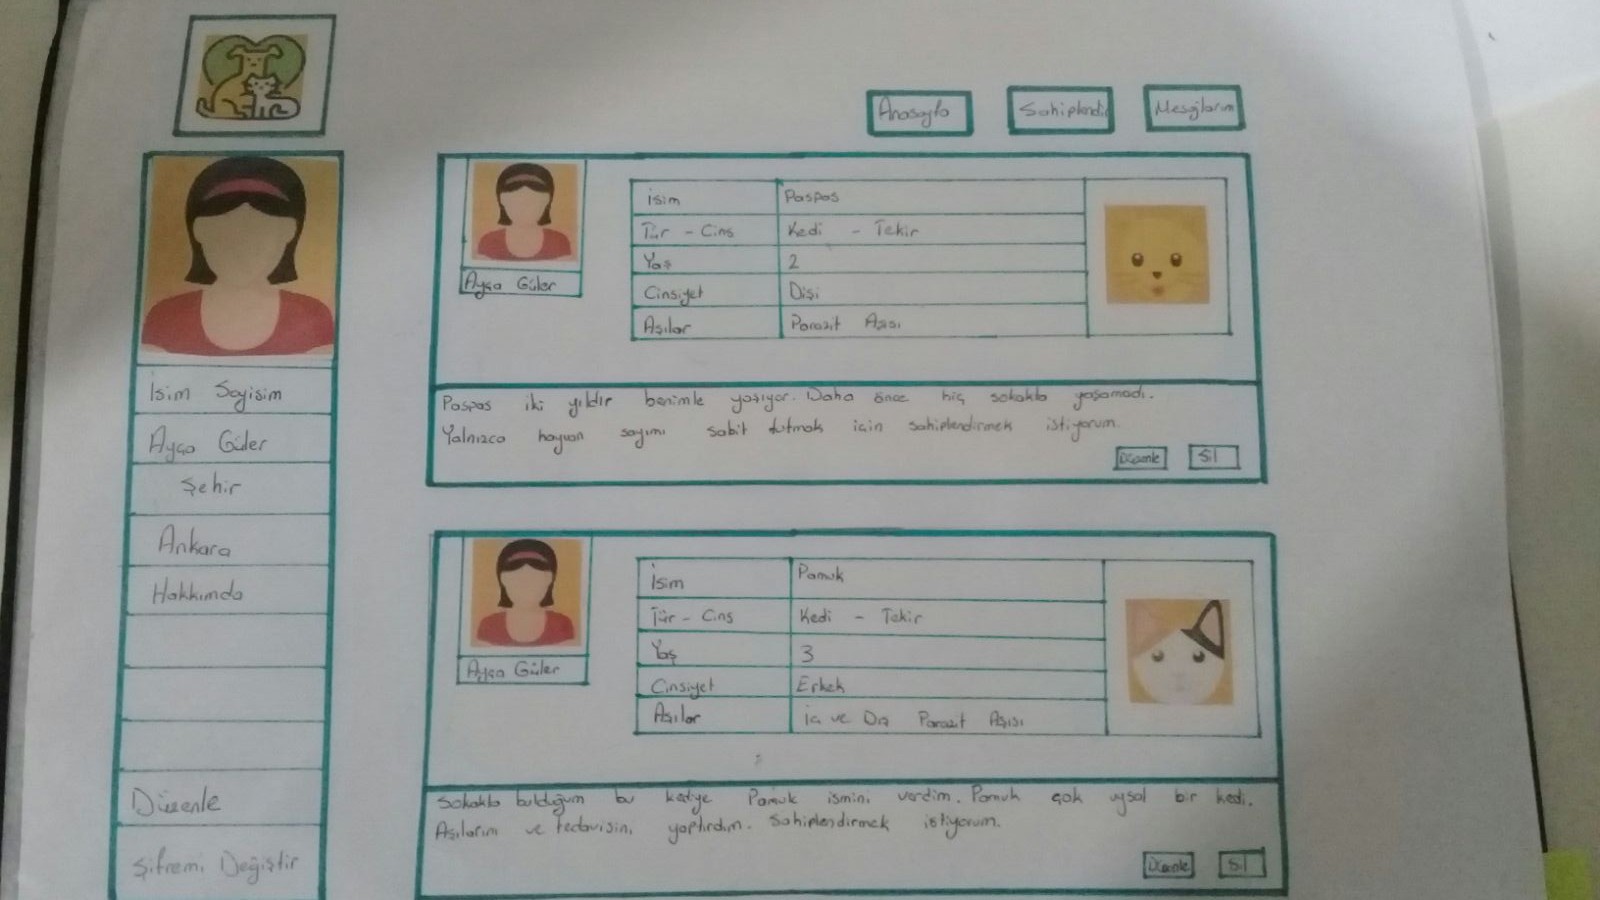 Anasayfa
Sahiplendir
Mesajlarım
İsim Soyisim
Ayça Güler
Şehir
Ankara
Hakkımda
Düzenle
Şifremi Değiştir
Ayça Güler
İsim Paspas
Tür - Cins Kedi - Tekir
Yaş 2
Cinsiyet Dişi
Aşılar Parazit Aşısı
Paspas iki yıldır benimle yaşıyor. Daha önce hiç sokakta yaşamadı.
Yalnızca hayvan sayımı sabit tutmak için sahiplendirmek istiyorum.
Düzenle Sil
Ayça Güler
İsim Pamuk
Tür - Cins Kedi - Tekir
Yaş 3
Cinsiyet Erkek
Aşılar İç ve Dış Parazit Aşısı
Sokakta bulduğum bu kediye Pamuk ismini verdim. Pamuk çok uysal bir kedi.
Aşılarını ve tedavisini yaptırdım. Sahiplendirmek istiyorum.
Düzenle Sil